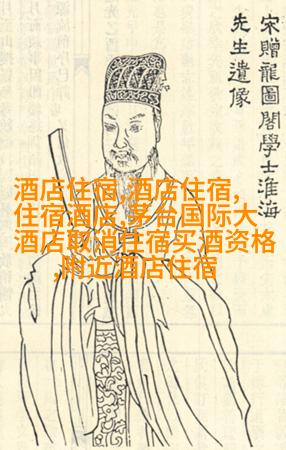 宋贈龍圖閣學士淮海
先生遺像
酒店住宿,酒店住宿,
住宿酒店,茅台国际大
酒店取消住宿买酒资格
,附近酒店住宿